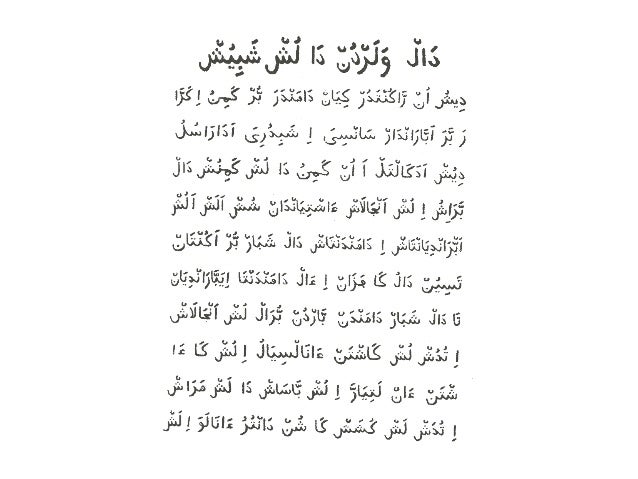 دَالْ وَلَرْدُنْ دَا لُشْ شَبِيُشْ
دِيشُ اُنْ رَّاكُنْتَدُرْ كِيَانْ دَامَنْدَرَ بُّرْ كَمِنُ اِكَرَّا
رَ بَّرَ اَبَّارَانْدَارْ سَانْسِيَى اِ شَبِدُرِيَى اَدَارَاسُلُ
دِيُشْ اَدَكَالْتَلْ اَ اُنْ كَمِنُ دَا لُشْ كَمِنُشْ دَالْ
بَّرَاِشُ اِ لُشْ اَنْجَالَاشْ ءَاشْتِيَانْدَانْ شُشْ اَلَشْ اَلُشْ
اَبَّرَانْدِيَانْتَاشْ اِ دَامَنْدَنْتَاشْ دَالْ شَبَارْ بُّرْ اَكُنْتَانْ
تَسِيُنْ دَالُ كَا فَزَانْ اِ ءَالْ دَامَنْدَنْتَا اِيَبَّارَانْدِيَانْ
تَا دَالْ شَبَارْ دَامَنْدَنْ بَّارْدُنْ بُّرَالْ لُشْ اَنْجَالَاشْ
اِ تُدُشْ لُشْ كَاشْتَنْ ءَانَالْسِيَالُ اِ لُشْ كَا ءَا
شْتَنْ ءَانْ لَتِيَارَّ اِ لُشْ بَّاسَاشْ دَا لَشْ مَرَاشْ
اِ تُدَشْ لَشْ كُشَشْ كَا شُنْ دَانْتُرُ ءَانَالَوَ اِ لَشْ